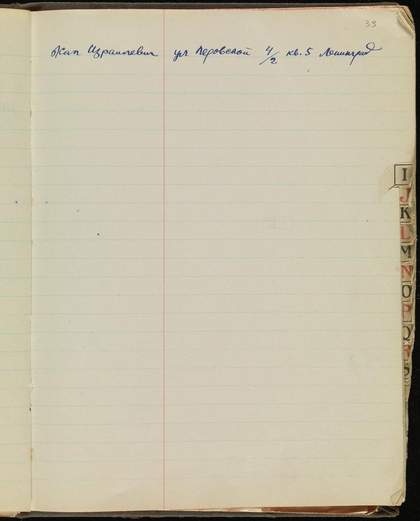 33
Жак Израилевич ул Перовской 4/2 кв. 5 Ленинград
I
J
K
L
M
N
O
P
Q
R
S